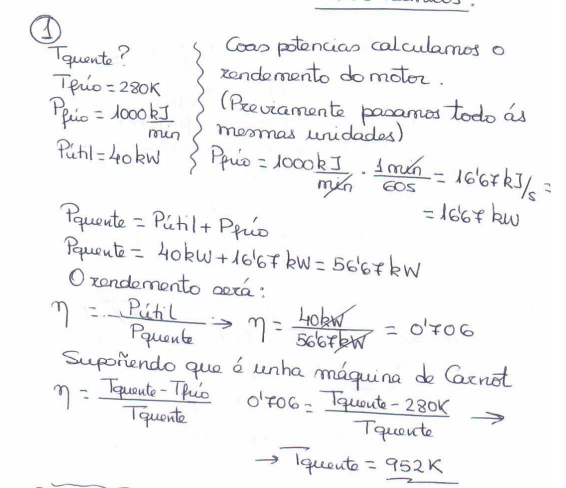 ①
Tquente?
Tfrío = 280K
Pfrío = 1000 kJ/min
Pútil = 40 kW
Coas potencias calculamos o
rendemento do motor.
(Previamente pasamos todo ás
mesmas unidades)
Pfrío = 1000 kJ/min · 1 min/60s = 16'67 kJ/s =
= 16'67 kW
Pquente = Pútil + Pfrío
Pquente = 40kW + 16'67 kW = 56'67 kW
O rendemento será:
η = Pútil/Pquente → η = 40kW/56'67kW = 0'706
Supoñendo que é unha máquina de Carnot
η = Tquente - Tfrío/Tquente 0'706 = Tquente - 280K/Tquente →
→ Tquente = 952 K